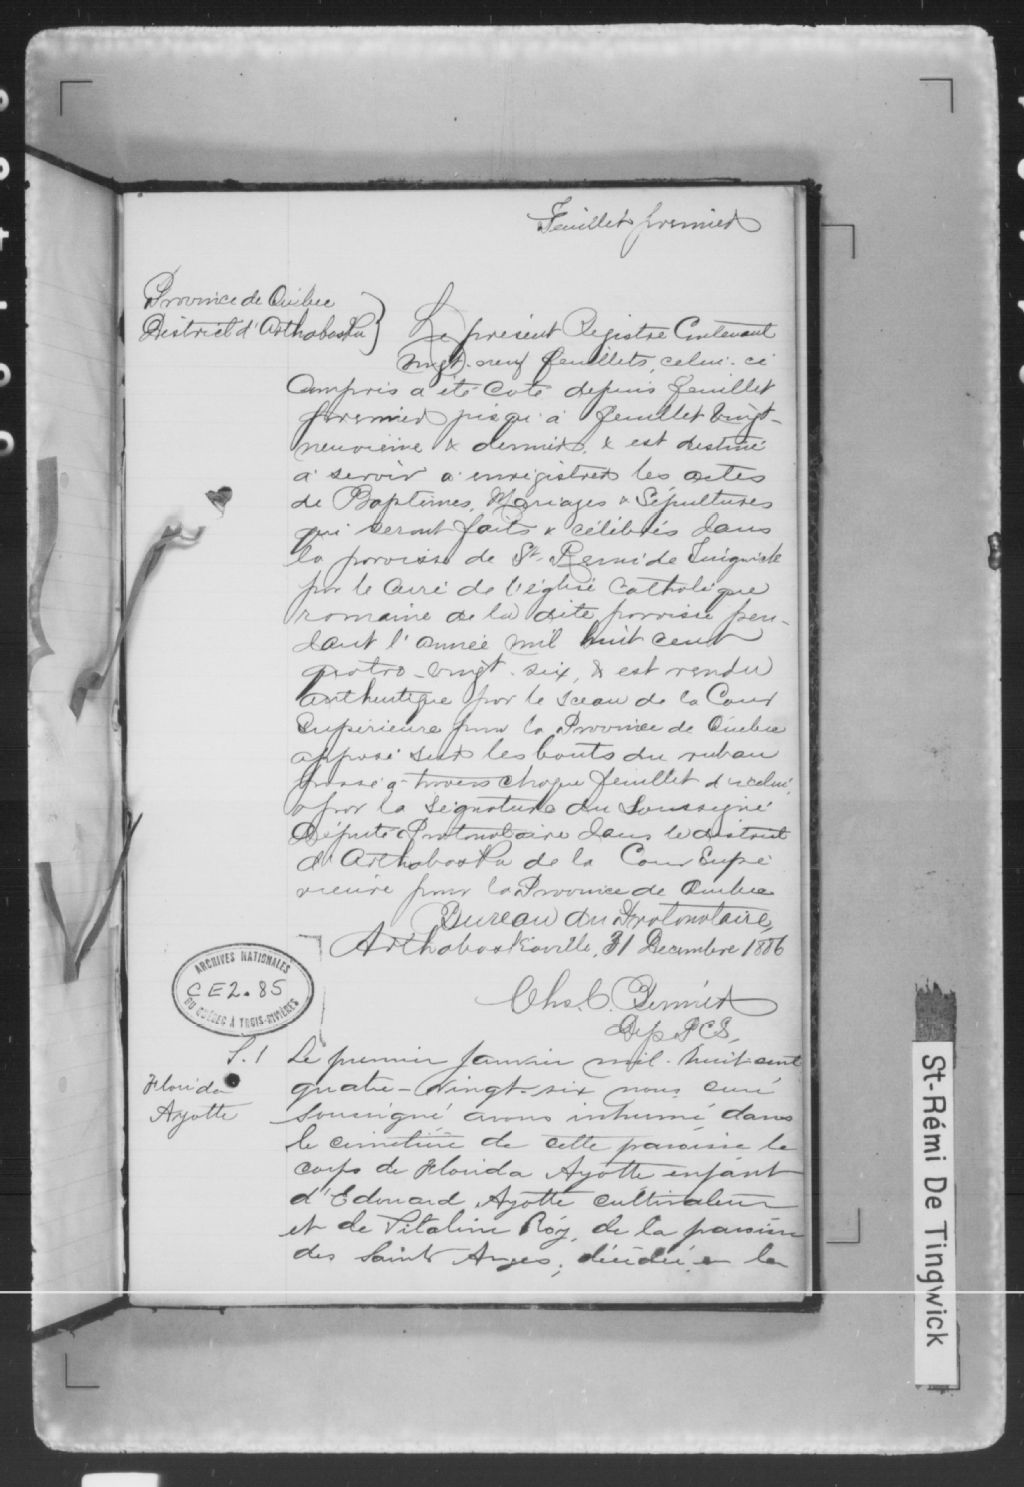 Feuillet premier
Province de Québec
District d'Arthabaska
Le présent Registre Contenant
vingt-neuf feuillets, celui-ci
Compris a été Coté depuis feuillet
premier jusqu'à feuillet vingt-
neuvième & dernier, & est destiné
à servir à enrégistrer les actes
de Baptêmes, Mariages & Sépultures
qui seront faits & célébrés dans
la paroisse de St. Remi de Tingwick
par le Curé de l'église Catholique
romaine de la dite paroisse pen-
dant l'année mil huit cent
quatre-vingt-six, & est rendu
authentique par le sceau de la Cour
Supérieure pour la Province de Québec
apposé sur les bouts du ruban
passé à travers chaque feuillet d'icelui,
& par la signature du Soussigné
Député Protonotaire dans le district
d'Arthabaska de la Cour Supé
rieure pour la Province de Québec
Bureau du Protonotaire,
Arthabaskaville, 31 Décembre 1886
Chs. C. Bernier
Dép. P.C.S.
ARCHIVES NATIONALES
CE2.85
DU QUÉBEC À TROIS-RIVIÈRES
S. 1
Florida
Ayotte
Le premier Janvier mil-huit-cent
quatre-vingt-six nous curé
soussigné avons inhumé dans
le cimetière de cette paroisse le
corps de Florida Ayotte enfant
d'Edouard Ayotte cultivateur
et de Vitaline Roy, de la paroisse
des Saints Anges, décédée en la
St-Rémi De Tingwick